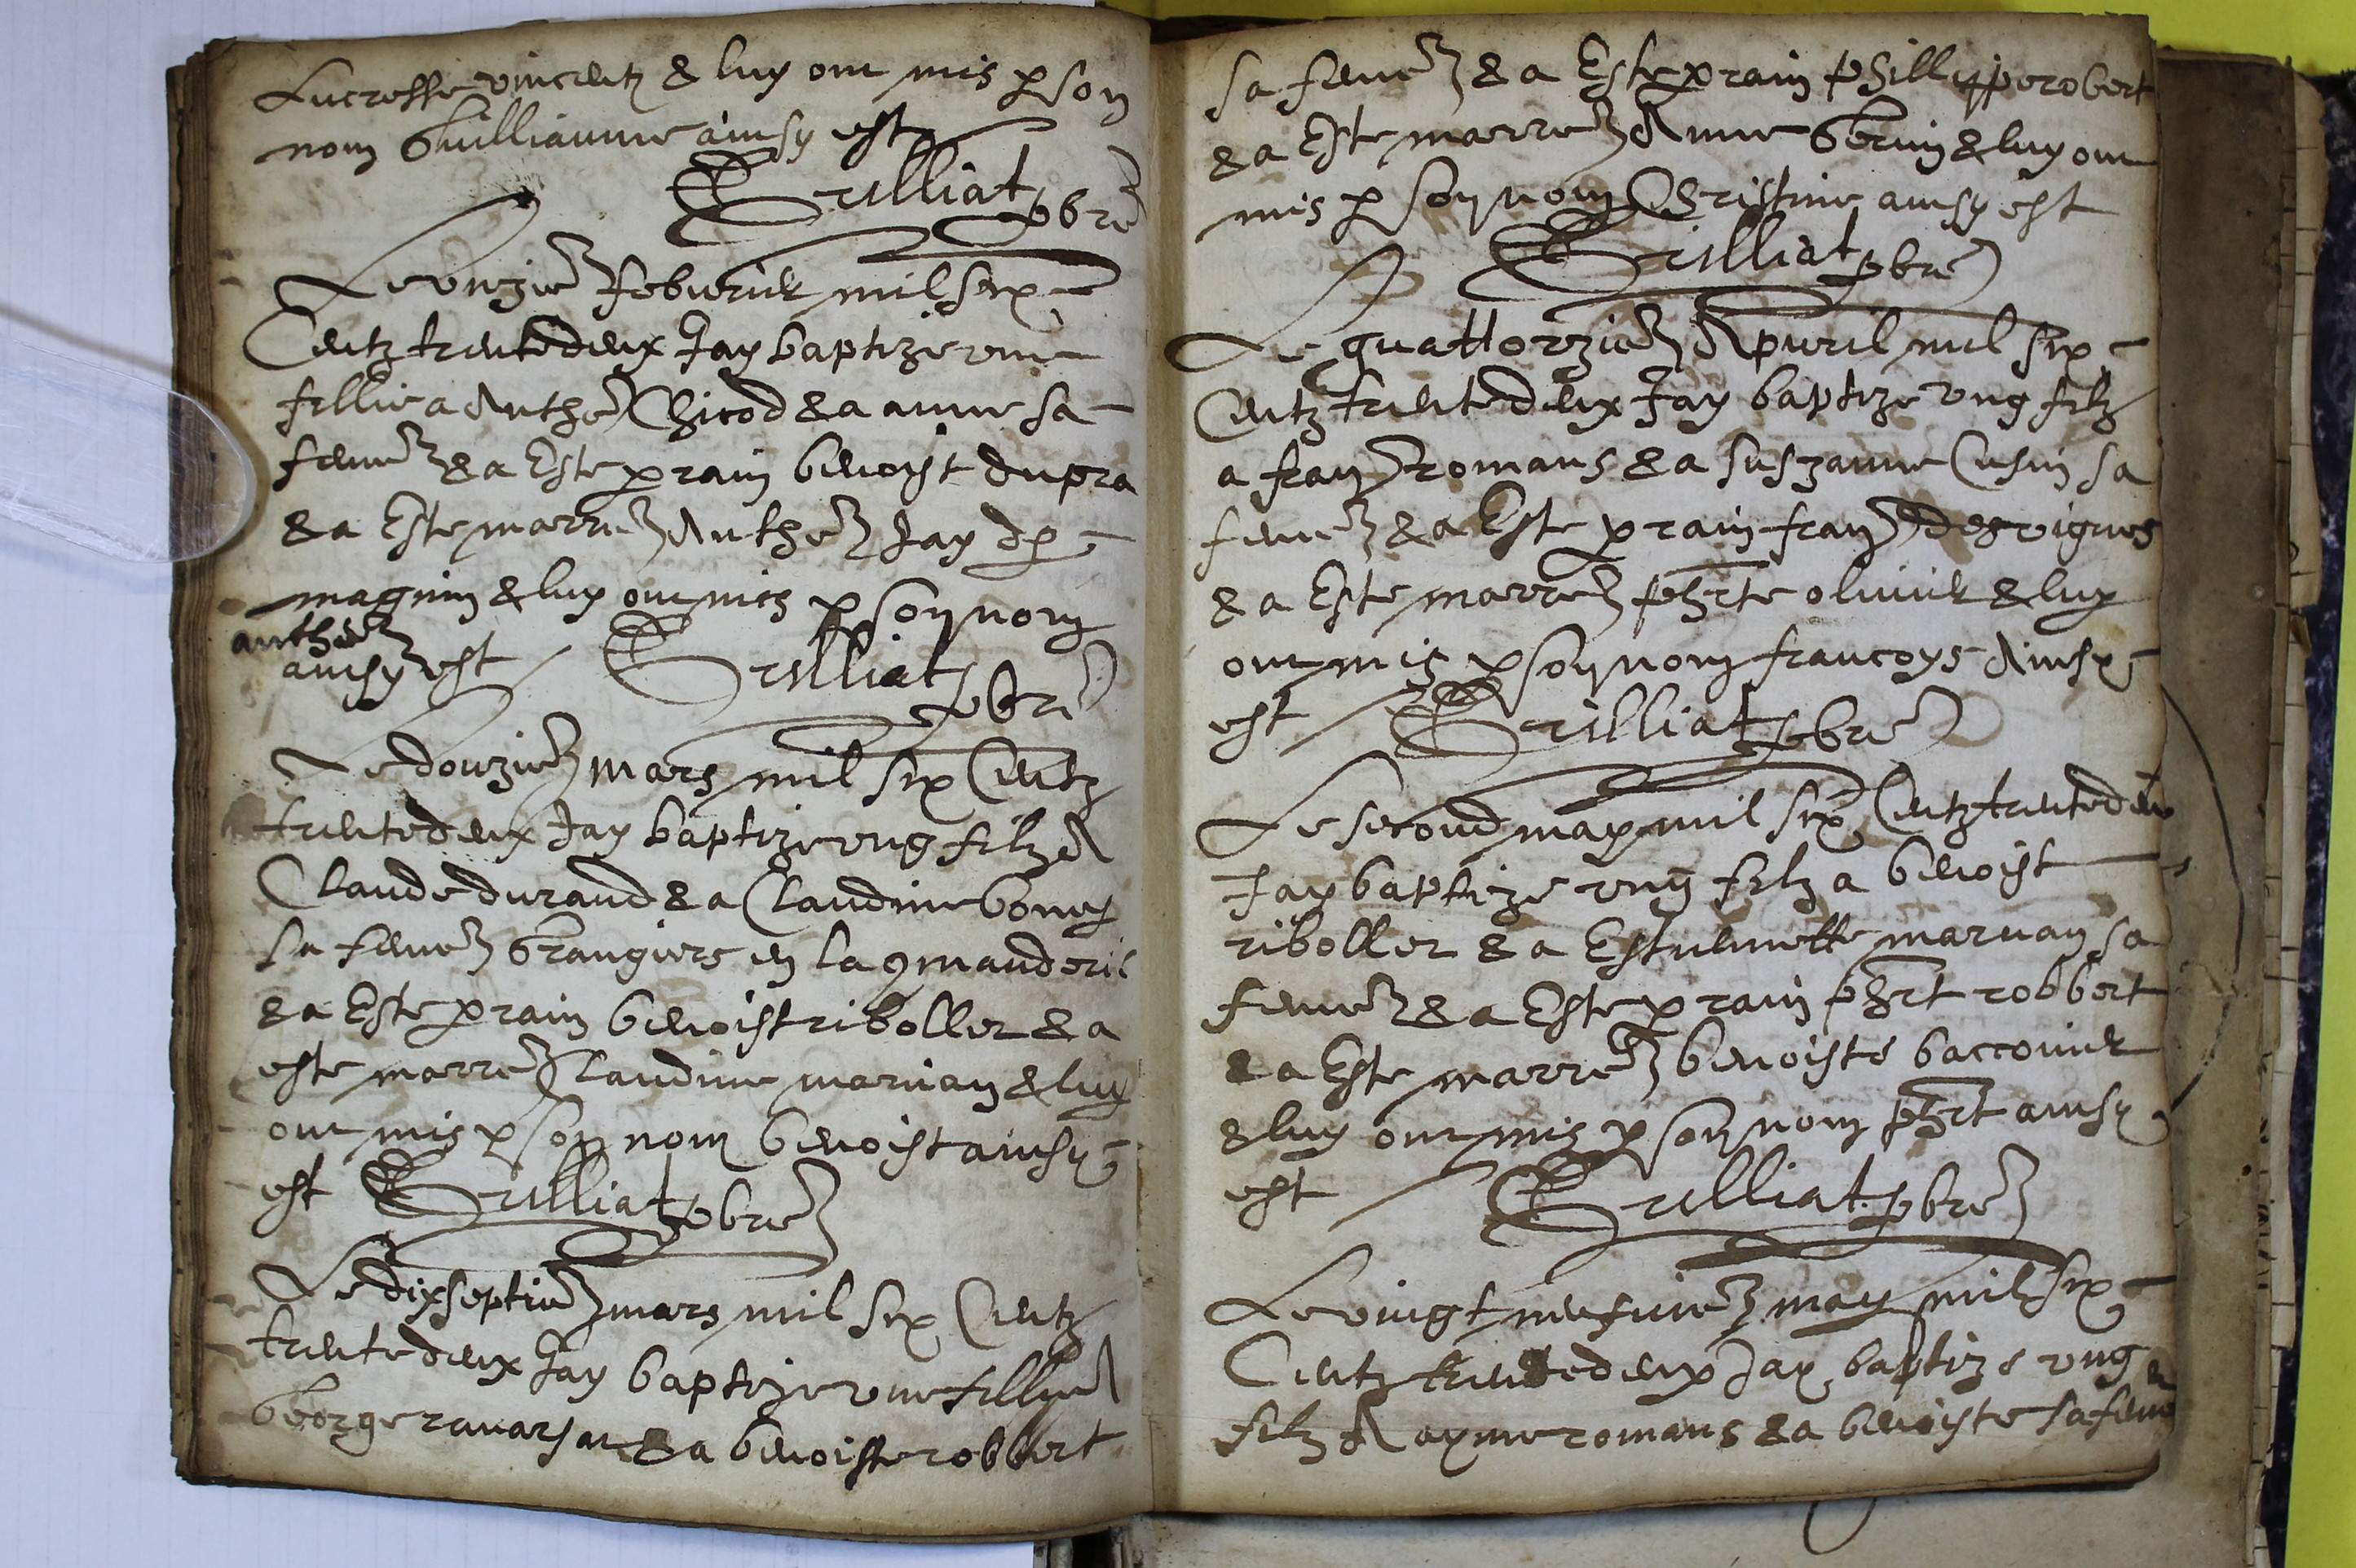 Lucresse vincentz & luy ont mis p son
nom Guilliaume ainsy est
Grilliat pbre
Le unzie febvrier mil six
Centz trente deux Jay baptize une
fillie a Anthe Chicod & a anne sa
feme & a Este prain benoist dupra
& a Este marre Anthe Jay dp
magnin & luy ont mis p son nom
anthe
ainsy est Grilliat
pbre
Le douzie mars mil six Centz
trente deux Jay baptize ung filz A
Claude durand & a Claudine bony
sa feme Grangiers en la 9manderie
& a Este prain benoist riboller & a
este marre Claudine marvan & luy
ont mis p son nom benoist ainsy
est Grilliat pbre
Le dixseptie mars mil six Centz
trente deux Jay baptize une fillie A
George & a benoiste robbert
sa feme & a Este prain phillippe robert
& a Este marre Anne & luy ont
mis p son nom Christine ainsy est
Grilliat pbre
Le quattorzie Apvril mil six
Centz trente deux Jay baptize ung filz
a fran romans & a suszanne Cusin sa
feme & a Este prain fran desvignes
& a Este marre phrte olivier & luy
ont mis p son nom francoys Ainsy
est Grilliat pbre
Le second may mil six Centz trente deux
Jay baptize ung filz a benoist
riboller & a Estiennette marvan sa
feme & a Este prain phrt robbert
& a Este marre benoiste
& luy ont mis p son nom phrt ainsy
est Grilliat pbre
Le vingt neufvie may mil six
Centz trente deux Jay baptize ung
filz A ayme romans & a benoiste sa feme